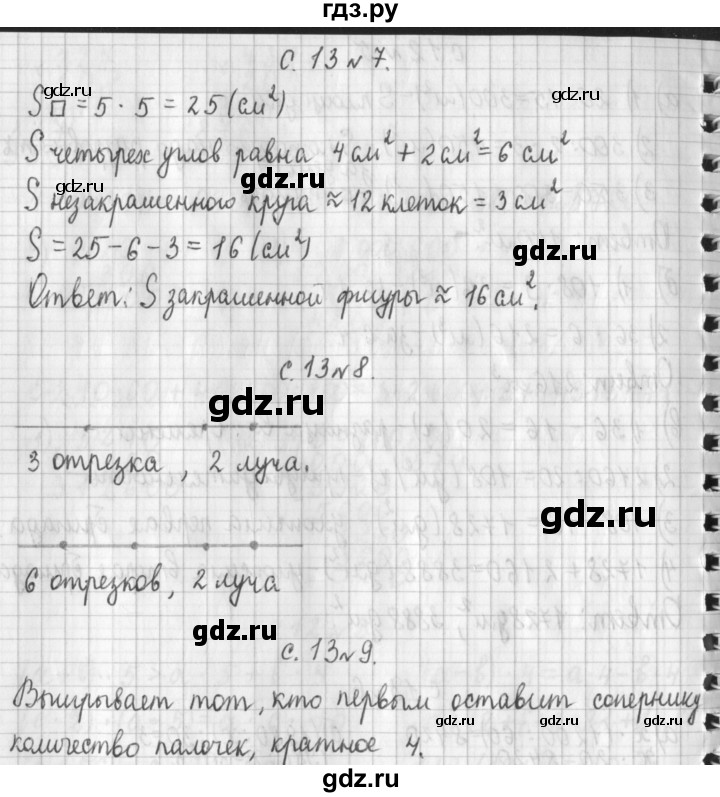 гдз.ру
С. 13 № 7.
gdz.ru
gdz.ru
S□ = 5 · 5 = 25 (см²)
S четырех углов равна 4 см² + 2 см² = 6 см²
gdz.ru
gdz.ru
S незакрашенного круга ≈ 12 клеток = 3 см²
S = 25 - 6 - 3 = 16 (см²)
gdz.ru
Ответ: S закрашенной фигуры ≈ 16 см².
С. 13 № 8.
gdz.ru
3 отрезка, 2 луча.
gdz.ru
6 отрезков, 2 луча
gdz.ru
С. 13 № 9.
Выигрывает тот, кто первым оставит сопернику
gdz.ru
gdz.ru
gdz.ru
количество палочек, кратное 4.
gdz.ru